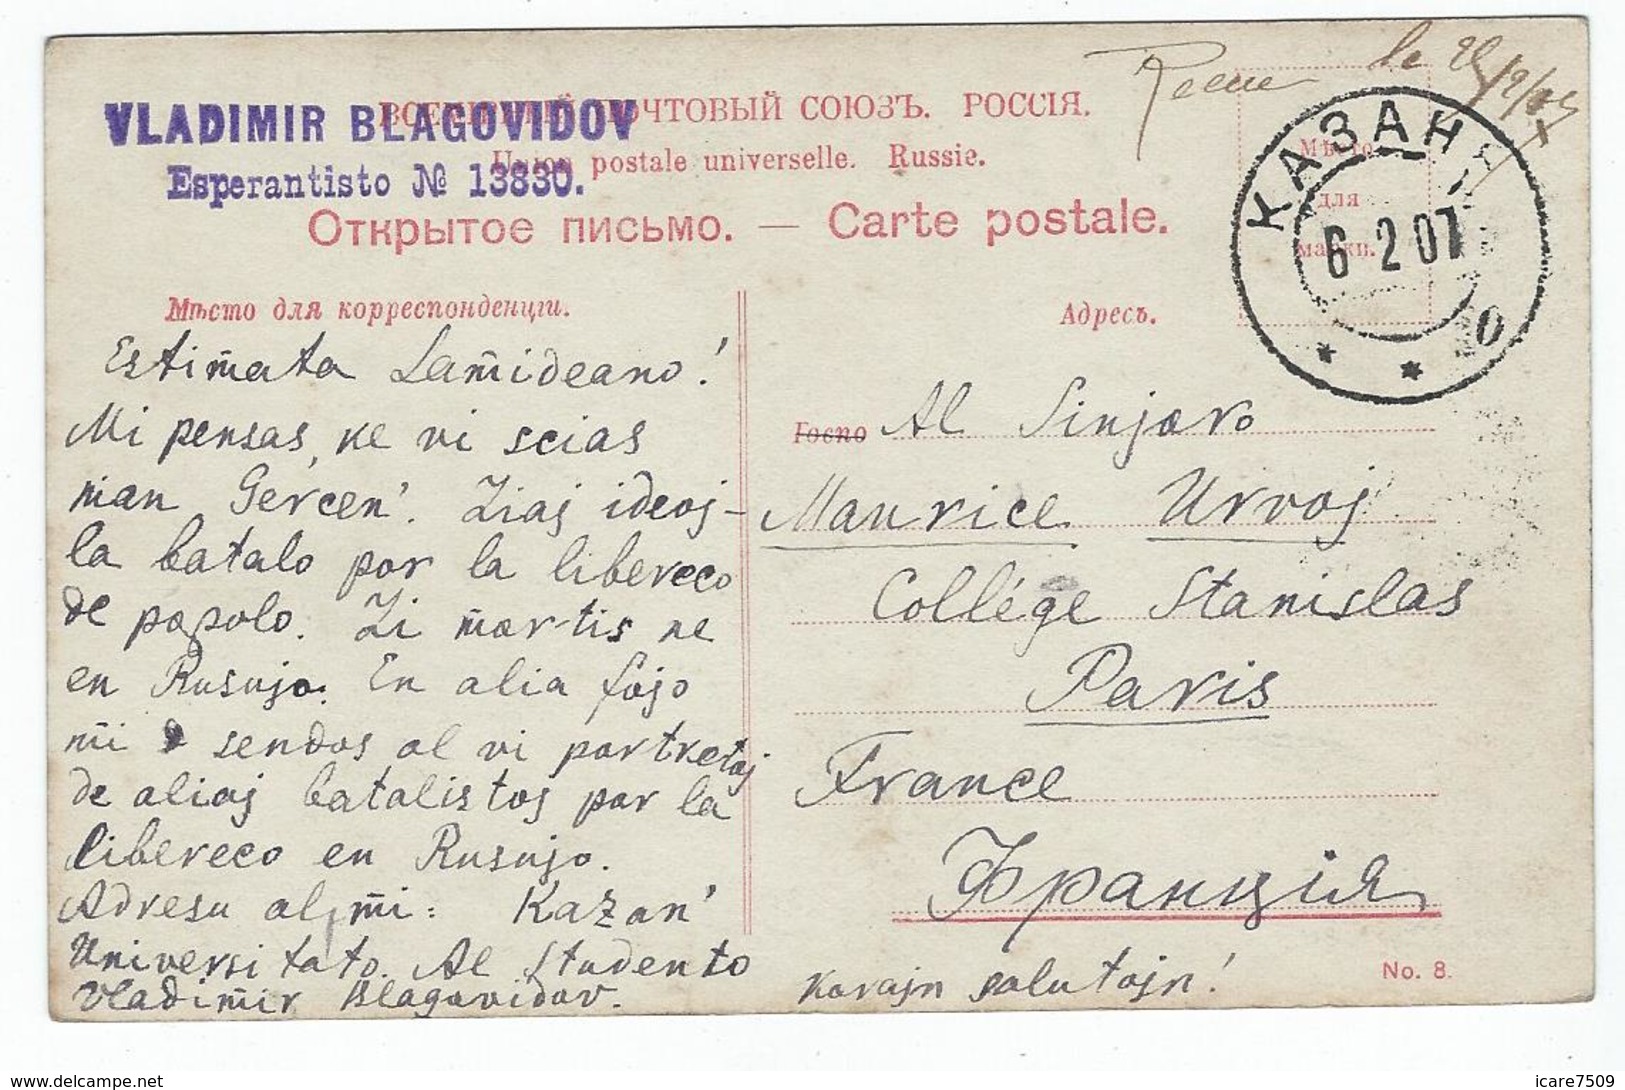 Recu le
VLADIMIR BLAGOVIDOV
ВСЕМІРНЫЙ ПОЧТОВЫЙ СОЮЗЪ. РОССІЯ.
Esperantisto № 13830.
Union postale universelle. Russie.
Открытое письмо. — Carte postale.
Мѣсто
для
марки.
КАЗАНЬ
6 2 07
Мѣсто для корреспонденціи.
Адресъ.
Estim̄ata Sam̄ideano!
Mi pensas, ke vi scias
nian Gercen'. Liaj ideoj –
la batalo por la libereco
de popolo. Li m̄ortis ne
en Rusujo. En alia fojo
m̄i sendos al vi portretoj
de aliaj batalistoj por la
libereco en Rusujo.
Adresu al m̄i: Kazan'
Universitato. Al Studento
Vladim̄ir Blagovidov.
Госпо Al Sinjoro
Maurice Urvoj
Collége Stanislas
Paris
France
Франція
No. 8.
Korajn salutojn!
icare7509
delcampe.net